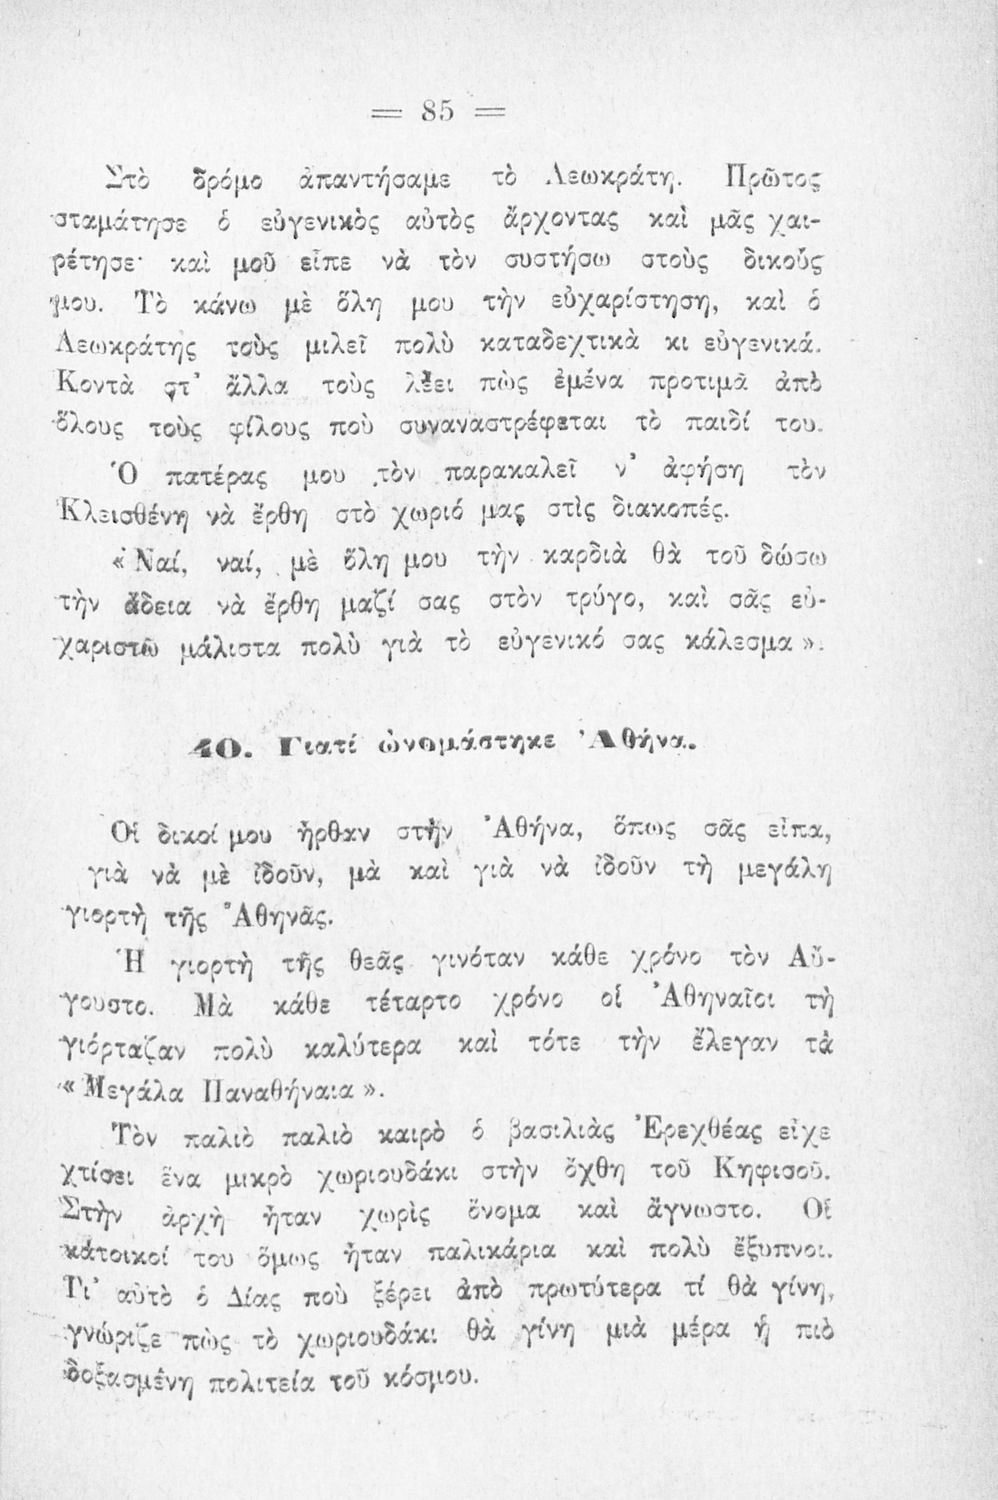 = 85 =
Στὸ δρόμο ἀπαντήσαμε τὸ Λεωκράτη. Πρῶτος
σταμάτησε ὁ εὐγενικὸς αὐτὸς ἄρχοντας καὶ μᾶς χαι-
ρέτησε· καὶ μοῦ εἶπε νὰ τὸν συστήσω στοὺς δικούς
μου. Τὸ κάνω μὲ ὅλη μου τὴν εὐχαρίστηση, καὶ ὁ
Λεωκράτης τοὺς μιλεῖ πολὺ καταδεχτικὰ κι εὐγενικά.
Κοντὰ στ’ ἄλλα τοὺς λέει πὼς ἐμένα προτιμᾶ ἀπὸ
ὅλους τοὺς φίλους ποὺ συναναστρέφεται τὸ παιδί του.
Ὁ πατέρας μου τὸν παρακαλεῖ ν’ ἀφήση τὸν
Κλεισθένη νὰ ἔρθη στὸ χωριό μας στὶς διακοπές.
«Ναί, ναί, μὲ ὅλη μου τὴν καρδιὰ θὰ τοῦ δώσω
τὴν ἄδεια νὰ ἔρθη μαζί σας στὸν τρύγο, καὶ σᾶς εὐ-
χαριστῶ μάλιστα πολὺ γιὰ τὸ εὐγενικό σας κάλεσμα».
40. Γιατί ὠνομάστηκε Ἀθήνα.
Οἱ δικοί μου ἦρθαν στὴν Ἀθήνα, ὅπως σᾶς εἶπα,
γιὰ νὰ μὲ ἰδοῦν, μὰ καὶ γιὰ νὰ ἰδοῦν τὴ μεγάλη
γιορτὴ τῆς Ἀθηνᾶς.
Ἡ γιορτὴ τῆς θεᾶς γινόταν κάθε χρόνο τὸν Αὔ-
γουστο. Μὰ κάθε τέταρτο χρόνο οἱ Ἀθηναῖοι τὴ
γιόρταζαν πολὺ καλύτερα καὶ τότε τὴν ἔλεγαν τὰ
«Μεγάλα Παναθήναια».
Τὸν παλιὸ παλιὸ καιρὸ ὁ βασιλιὰς Ἐρεχθέας εἶχε
χτίσει ἕνα μικρὸ χωριουδάκι στὴν ὄχθη τοῦ Κηφισοῦ.
Στὴν ἀρχὴ ἦταν χωρὶς ὄνομα καὶ ἄγνωστο. Οἱ
κάτοικοί του ὅμως ἦταν παλικάρια καὶ πολὺ ἔξυπνοι.
Γι’ αὐτὸ ὁ Δίας ποὺ ξέρει ἀπὸ πρωτύτερα τί θὰ γίνη,
γνώριζε πὼς τὸ χωριουδάκι θὰ γίνη μιὰ μέρα ἡ πιὸ
δοξασμένη πολιτεία τοῦ κόσμου.